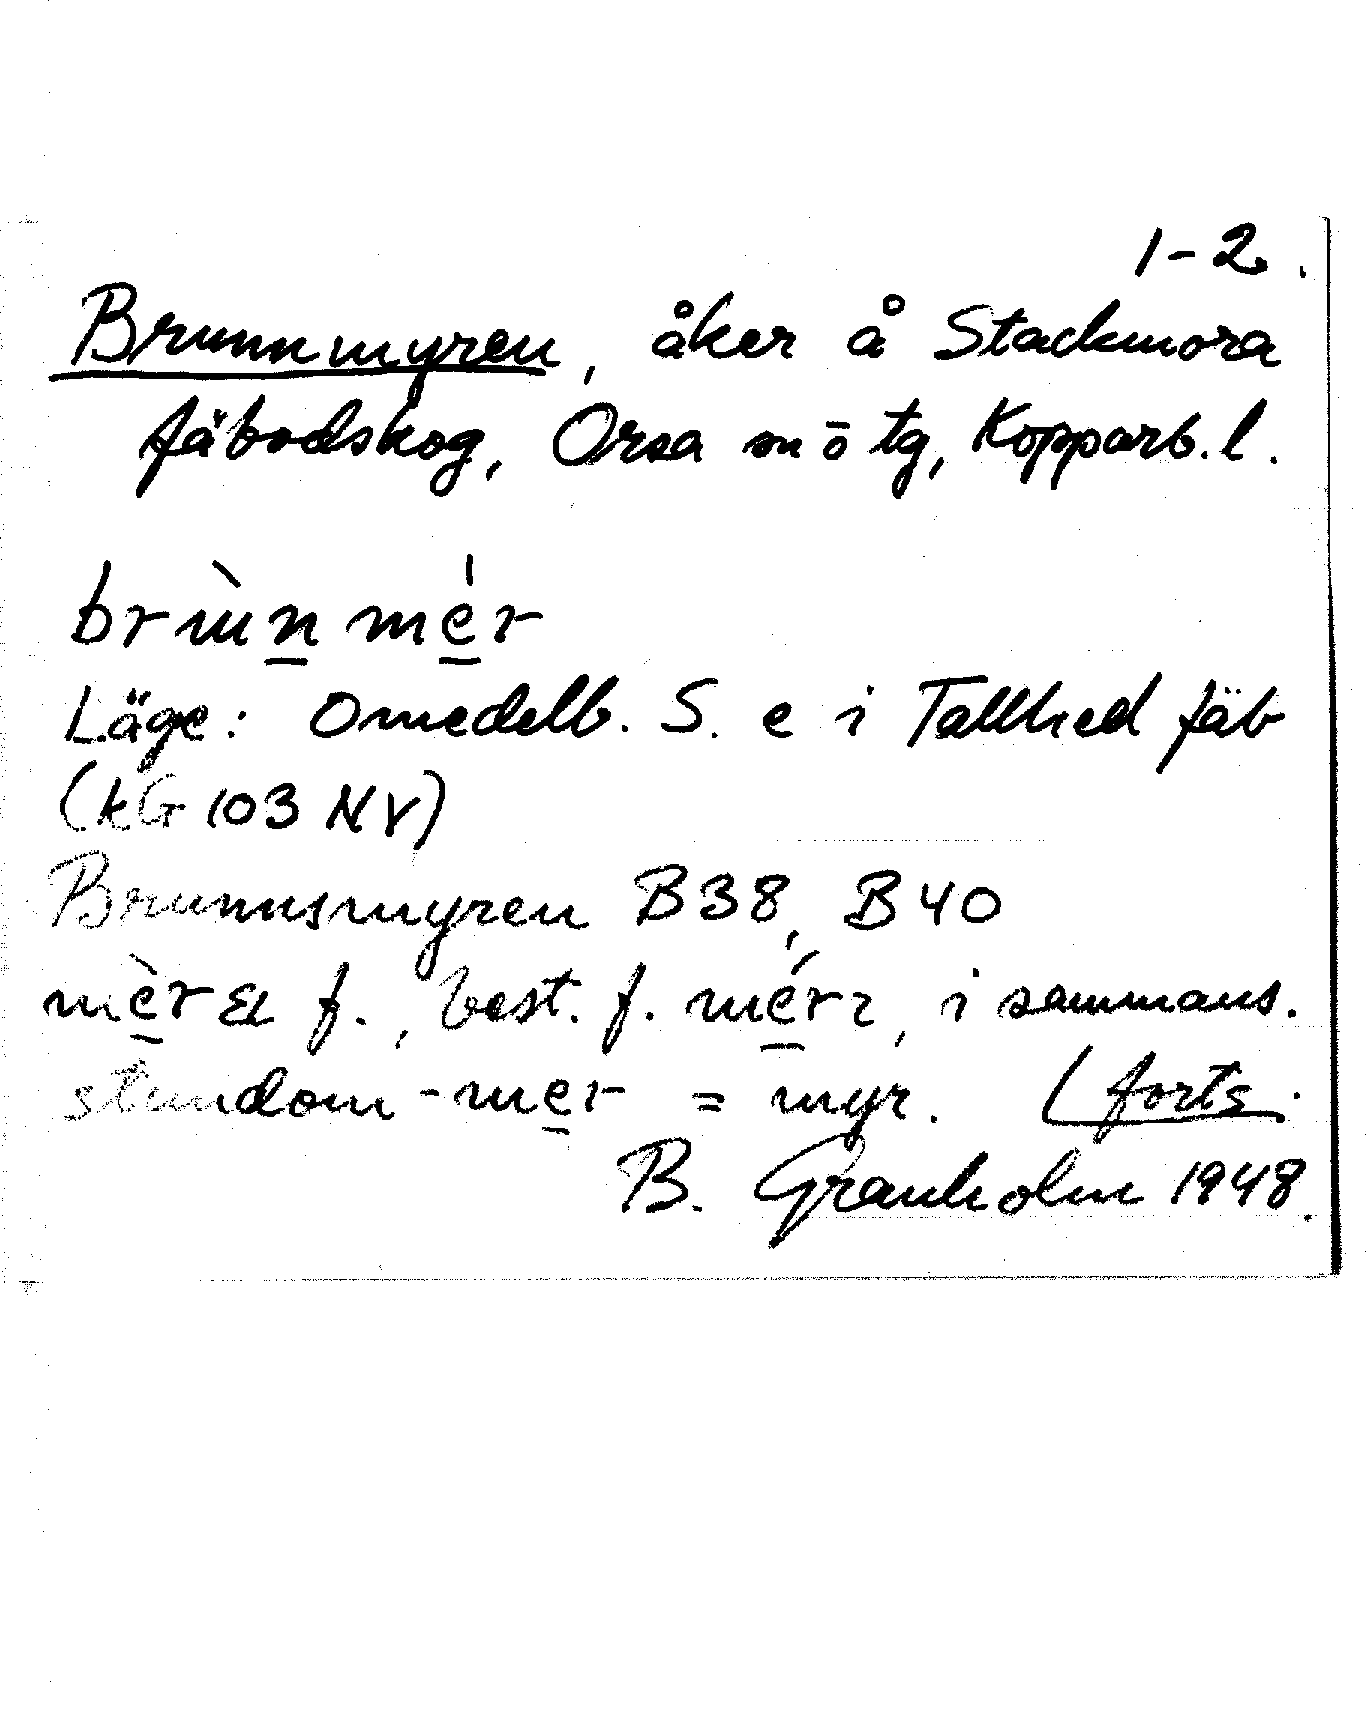 1-2.
Brunnmyren, åker å Stackmora
fäbodskog, Orsa sn ö tg, Kopparb. l.
brùn̲ me̲̍r
Läge: Omedelb. S. e i Tallhed fäb
(kG 103 NV)
Brunnsmyren B38, B40
f., best. f. i sammans.
stundom -me̲r = myr. (forts.
B. Granholm 1948.